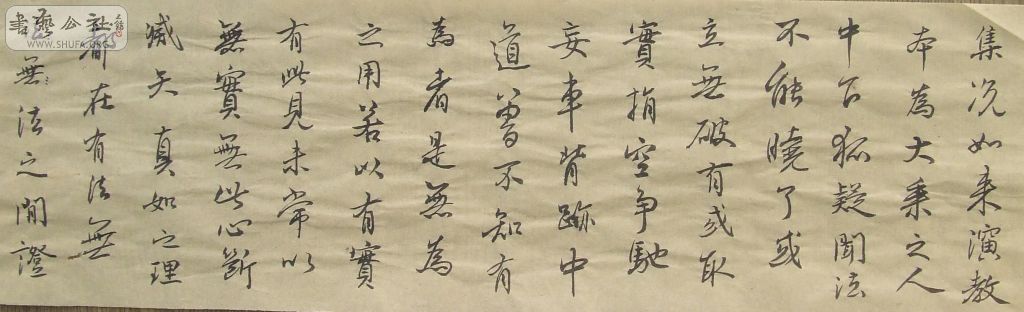 集況如来演教
本為大乘之人
中下狐疑聞法
不能曉了或
立無破有或取
實指空爭馳
妄車背跡中
道曽不知有
為者是無為
之用若以有實
有此見未常以
無實無此心斷
滅矣真如之理
都在有法無
無法之間證
書藝公社
WWW.SHUFA.ORG